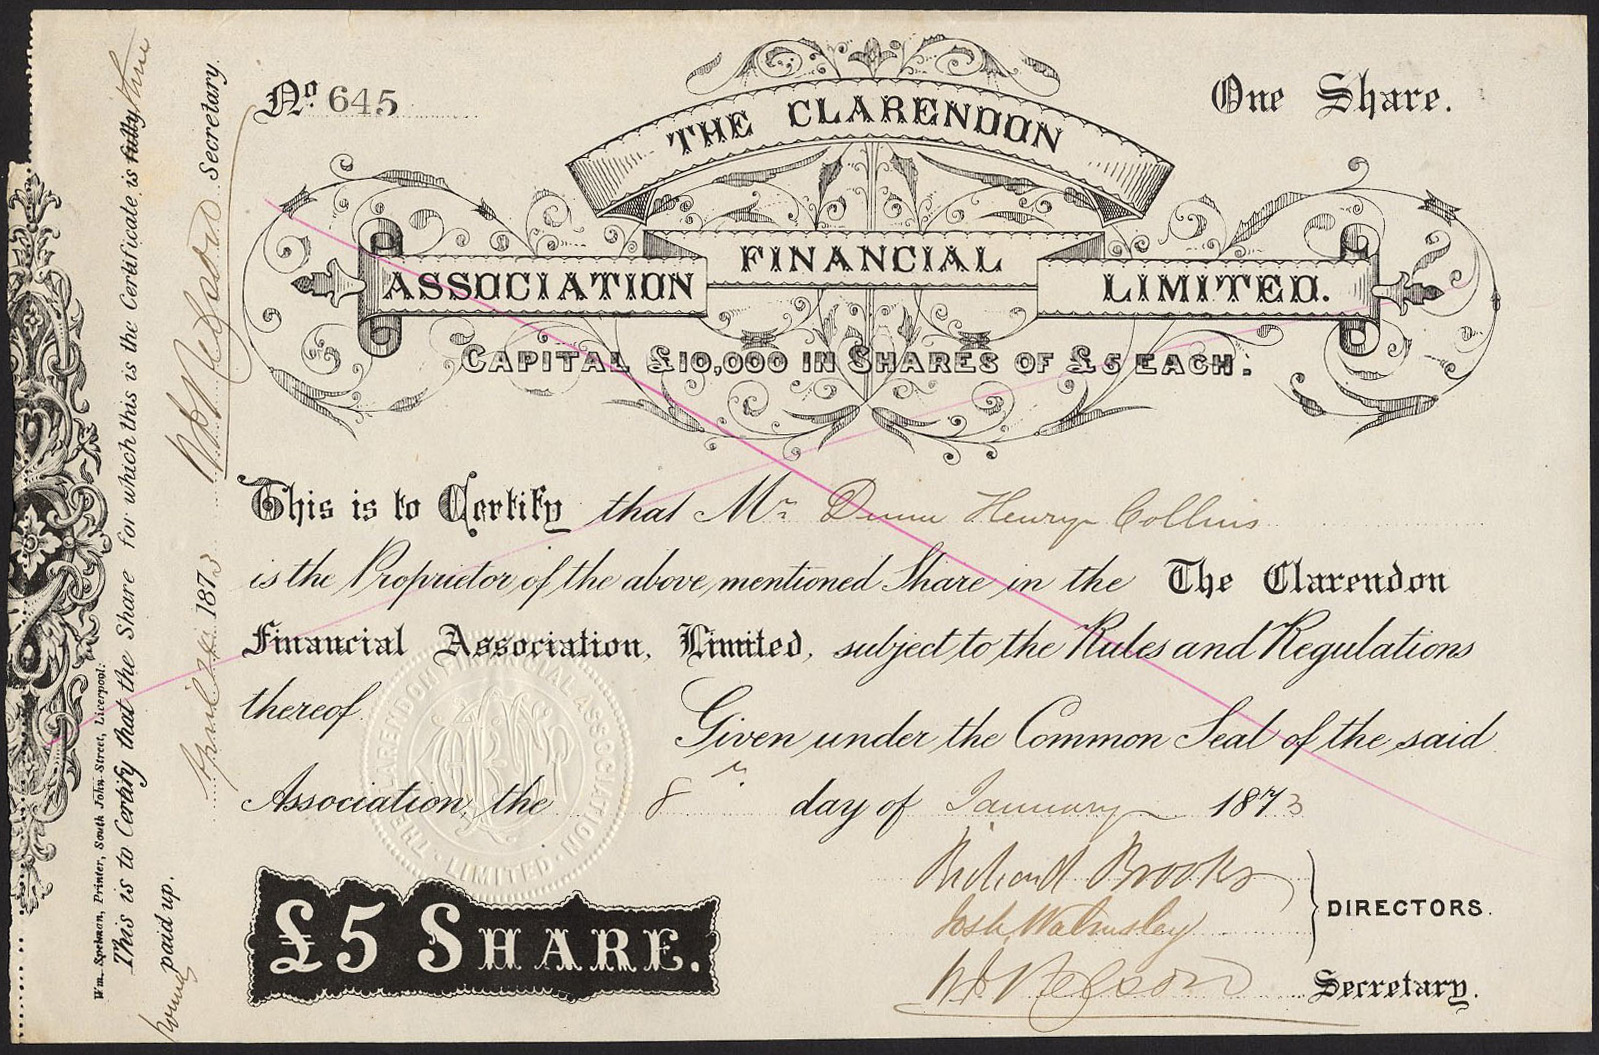 No. 645
One Share.
THE CLARENDON
FINANCIAL
ASSOCIATION
LIMITED.
CAPITAL £10,000 IN SHARES OF £5 EACH.
This is to Certify that Mr. Henry Collins
is the Proprietor of the above mentioned Share in the The Clarendon
Financial Association, Limited, subject to the Rules and Regulations
thereof.
Given under the Common Seal of the said
Association, the 8 day of January 1873
Richard Brooks
Josh. Walmsley
DIRECTORS.
Nelson
Secretary.
£5 SHARE.
THE CLARENDON FINANCIAL ASSOCIATION
LIMITED
Wm. Spelman, Printer, South John Street, Liverpool.
This is to Certify that the Share for which this is the Certificate is fully three
pounds paid up.
April 24 1873 Secretary.